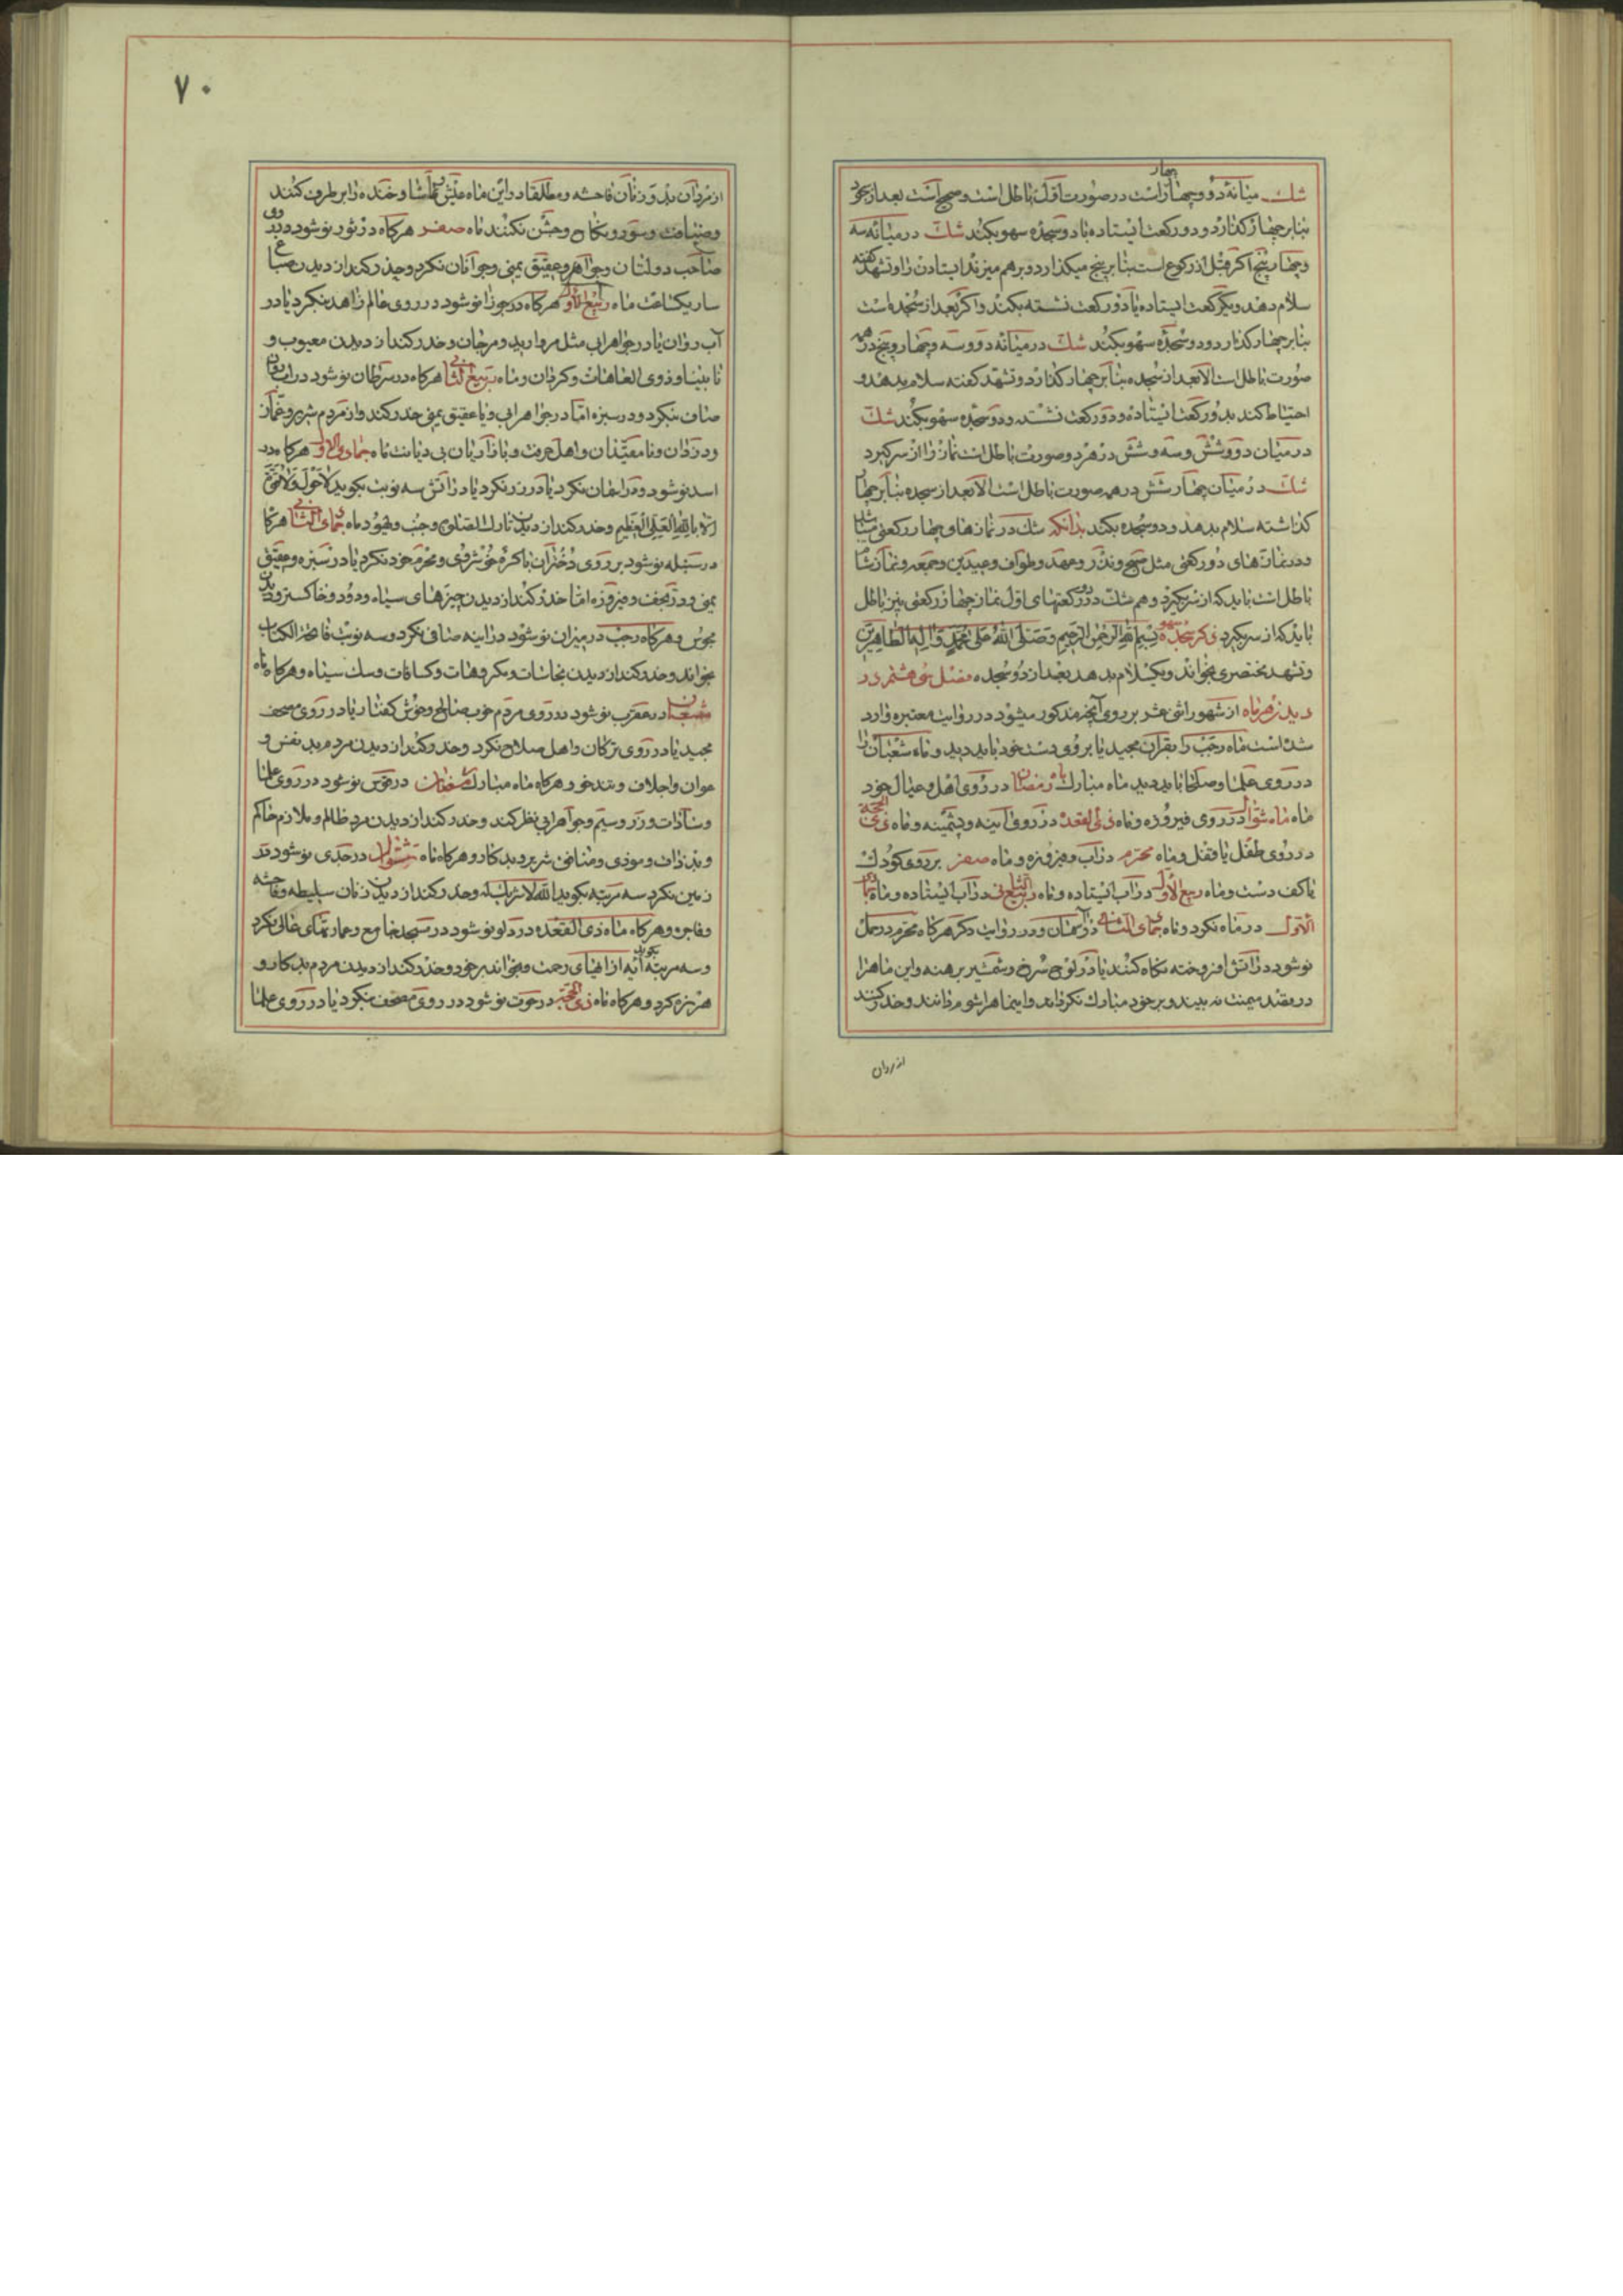 چهار
شك میانهٔ دو و چهار است در صورت اوّل باطل است و صحیح است بعد از سجود
بنا بر چهار گذارد و دو رکعت ایستاده با دو سجده سهو بکند شك در میانه سه
و چهار و پنج اگر قبل از رکوع است بنا بر پنج میگذارد و بر هم میزند ایستادن را و تشهد گفته
سلام دهد و یکرکعت ایستاده یا دو رکعت نشسته بکند و اگر بعد از سجده است
بنا بر چهار گذارد و دو سجده سهو بکند شك در میانه دو و سه و چهار و پنج در همه
صورت باطل است الا بعد از سجده بنا بر چهار گذارد و تشهد گفته سلام بدهد و
احتیاط کند بدو رکعت ایستاده و دو رکعت نشسته و دو سجده سهو بکند شك
در میان دو و شش و سه و شش در هر دو صورت باطل است نماز را از سر گیرد
شك در میان چهار و شش در همه صورت باطل است الا بعد از سجده بنا بر چهار
گذاشته سلام بدهد و دو سجده بکند بدانکه شك در نمازهای چهار رکعتی میباشد
و در نمازهای دو رکعتی مثل صبح و نذر و عهد و طواف و عیدین و جمعه و نماز نشا
باطل است باید که از سر گیرد و هم شك در دو رکعتهای اول نماز چهار رکعتی نیز باطل
باید که از سر گیرد ذکر سجده سهو بسم الله الرحمن الرحیم و صلی الله علی محمد و آله الطاهرین
و تشهد مختصری بخواند و یکسلام بدهد بعد از دو سجده فصل سی هشتم در
دیدن هر ماه از شهور اثنی عشر بر روی آنچه مذکور میشود در روایت معتبره وارد
شده است ماه رجب را بقرآن مجید یا بر روی دست خود باید دید و ماه شعبان را
در روی علما و صلحا باید دید ماه مبارك رمضان در روی اهل و عیال خود
ماه ماه شوال در روی فیروزه و ماه ذی القعده در روی آئینه و پشمینه و ماه ذی حجه
در روی طفل یا قفل و ماه محرم در آب و فیروزه و ماه صفر بر روی کودك
یا کف دست و ماه ربیع الاول در آب ایستاده و ماه ربیع الثانی در آب ایستاده و ماه جمادی
الاول در ماه نگرد و ماه جمادی الثانی در آسمان و در روایت دگر هرگاه محرم در حمل
نو شود در آتش افروخته نگاه کنند یا در لوح سُرخ و شمشیر برهنه و این ماهرا
در بقند میمنت نه بیند و بر خود مبارك نگرداند و اینماهرا شوم دانند و حذر کنند
از مردان
۷۰
از مردان بد و زنان فاحشه و مطلقا در این ماه عیش و تماشا و خنده را بر طرف کنند
و ضیافت و سور و نکاح و جشن نکنند ماه صفر هرگاه در ثور نو شود در روی
صاحب دولتان و جواهر و عقیق یمنی و جوانان نگرد و حذر کند از دیدن صبا ع
ساریکساعت ماه ربیع الاول هرگاه در جوزا نو شود در روی عالم زاهد بنگرد یا در
آب روان یا در جواهرابی مثل مروارید و مرجان و حذر کند از دیدن معیوب و
نابینا و ذوی العاهات و کرفان و ماه ربیع الثانی هرگاه در سرطان نو شود در آب روان
صاف بنگرد و در سبزه اما در جواهرابی و یا عقیق یمنی حذر کند و از مردم شریر و غمّاز
و دزدان و نامقیّدان و اهل حرفت و بازاریان بی دیانت ماه جمادی الاول هرگاه در
اسد نو شود در آسمان نگرد یا در زر نگرد یا در آتش سه نوبت بگوید لا حول و لا قوّة
الا بالله العلی العظیم و حذر کند از دیدن تارك الصلوة و جنب و یهود ماه جمادی الثانی هرگاه
در سنبله نو شود بر روی دختران باکره خوشروی و محرم خود نگرد یا در سبزه و عقیق
یمنی و در نجف و فیروزه اما حذر کند از دیدن چیزهای سیاه و دود و خاکستر و دیدن
مجوس و هرگاه رجب در میزان نو شود در آینه صاف نگرد و سه نوبت فاتحة الکتاب
بخواند و حذر کند از دیدن نجاسات و مکروهات و کسافات و سك سیاه و هرگاه ماه
شعبان در عقرب نو شود در روی مردم خوب صالح و خوش گفتار یا در روی مصحف
مجید یا در روی ترکان و اهل سلاح نگرد و حذر کند از دیدن مردم بد نفس و
عوان و اجلاف و تندخو و هرگاه ماه مبارك رمضان در قوس نو شود در روی علما
و سادات و زر و سیم و جواهرابی نظر کند و حذر کند از دیدن مرد ظالم و ملازم حاکم
و بد ذات و موذی و منافق شریر و بد کار و هرگاه ماه شوال در جدی نو شود در
زمین نگرد سه مرتبه بگوید الله لا شریك له و حذر کند از دیدن زنان سلیطه و فاحشه
و فاجره و هرگاه ماه ذی القعده در دلو نو شود در مسجد جامع و عمارتهای عالی نگرد
و سه مرتبه آیه از آیهای رحمت بخواند بر خود و حذر کند از دیدن مردم بد کار و
هرزه گرد و هرگاه ماه ذی الحجه در حوت نو شود در روی مصحف بنگرد یا در روی علما